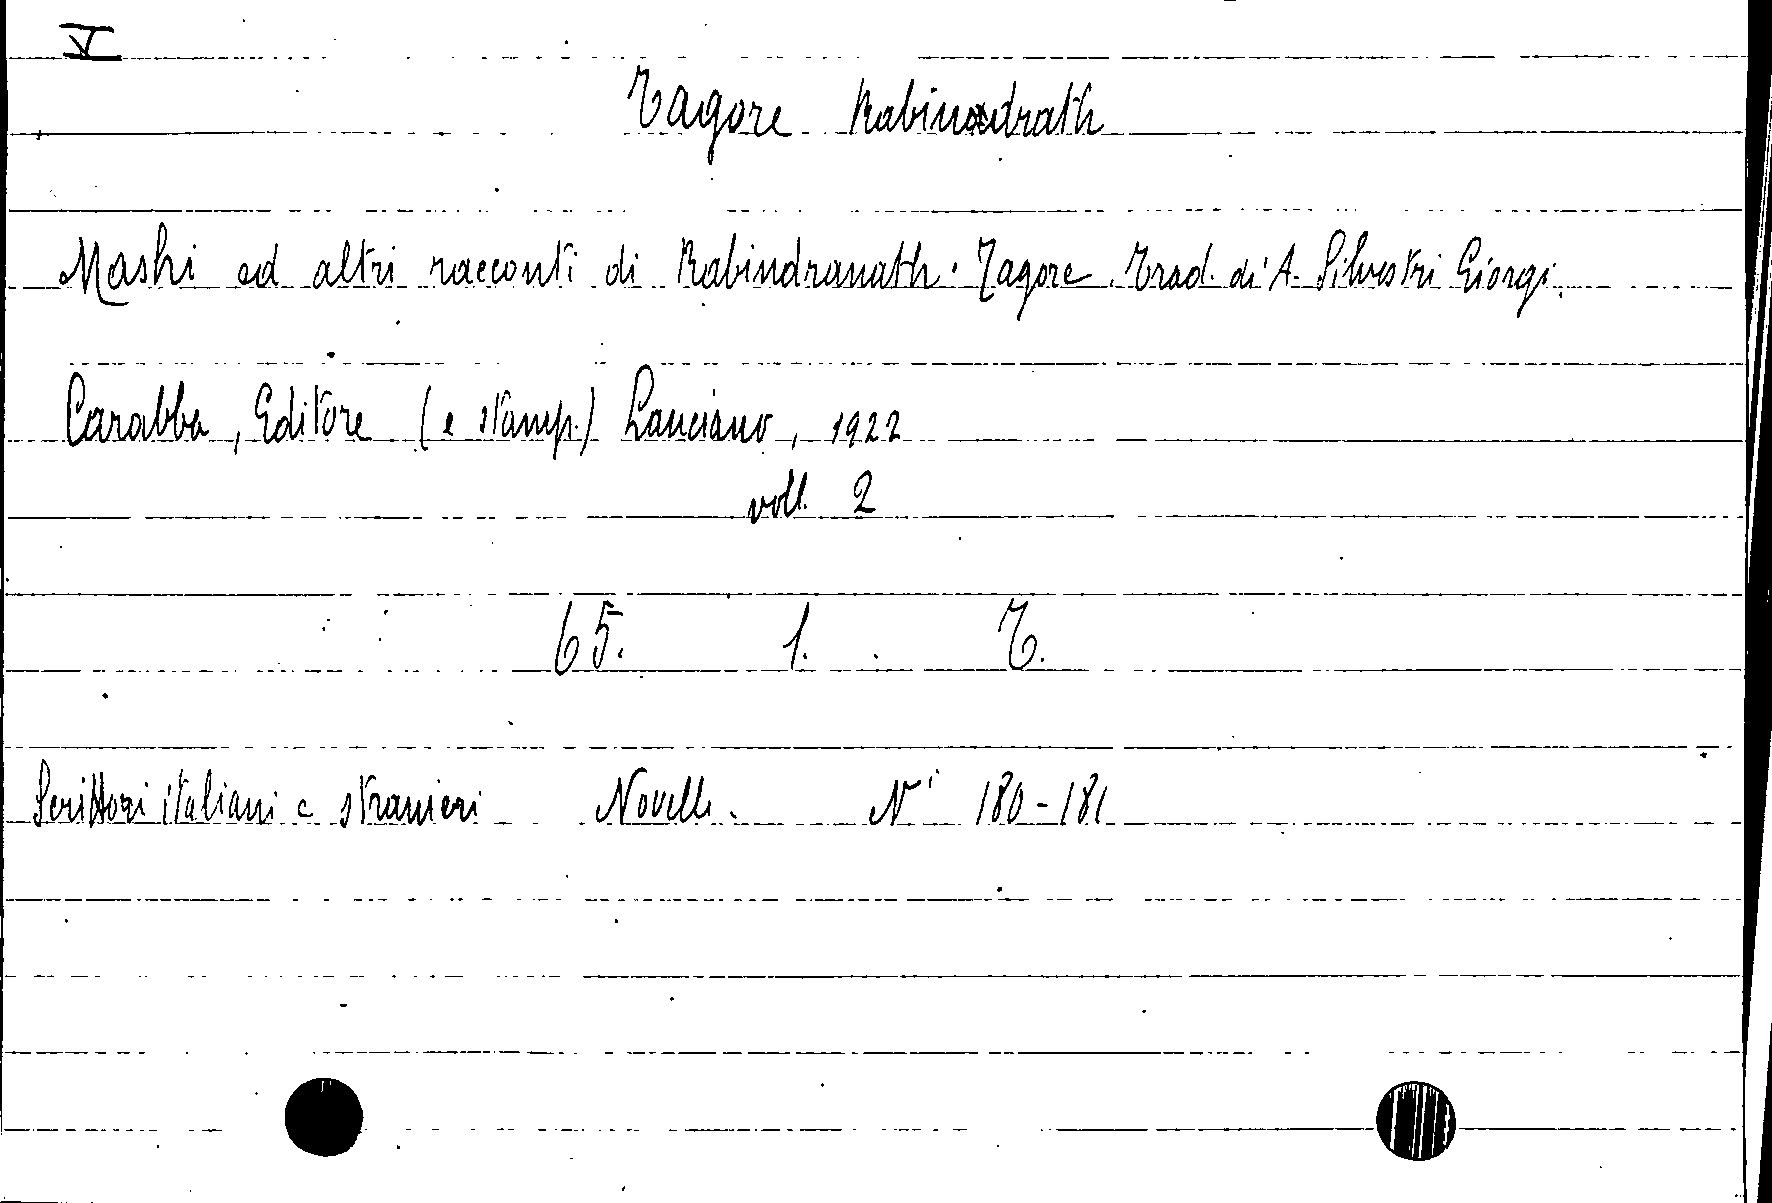 V
Tagore Rabindrath
Mashi ed altri racconti di Rabindranath. Tagore. Trad. di A. Silvestri Giorgi.
Carabba, Editore (e stamp.) Lanciano, 1922
voll. 2
65. 1. T.
Scrittori italiani e stranieri Novelle. Nⁱ 180-181